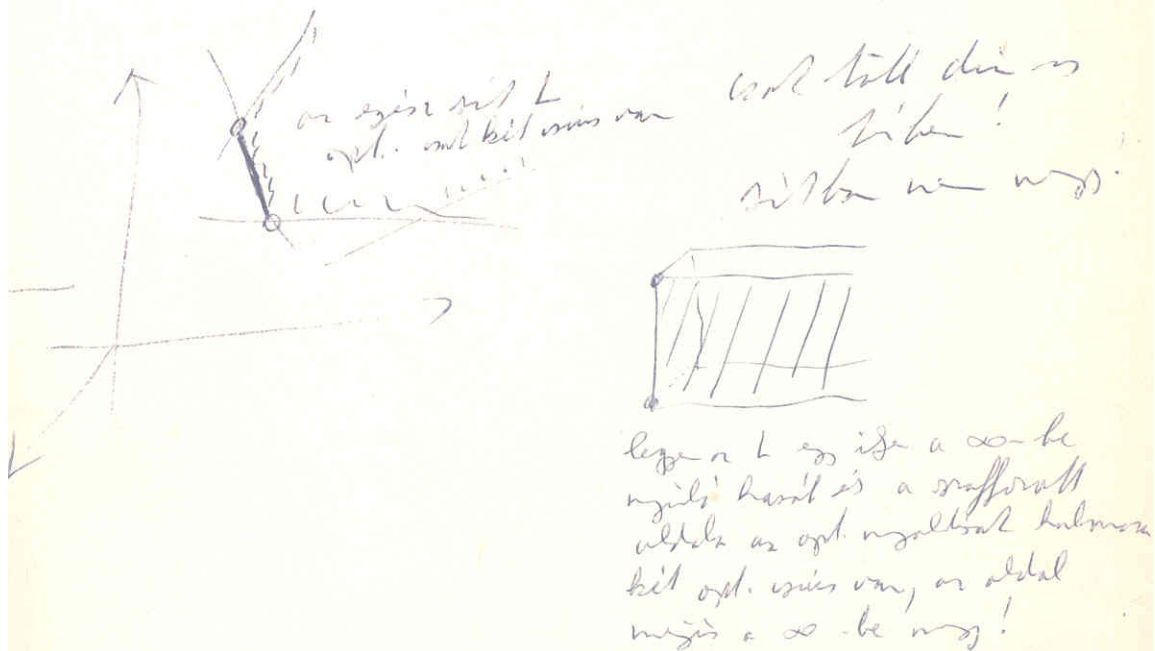 az egész sík L
opt. csak két csúcs van
csak több dim-s
térben!
síkban nem megy!
legyen az L egy ilyen a ∞-be
nyúló hasáb és a vonalkázott
oldala az opt. megoldások halmaza
két opt. csúcs van, az oldal
mégis a ∞-be megy!